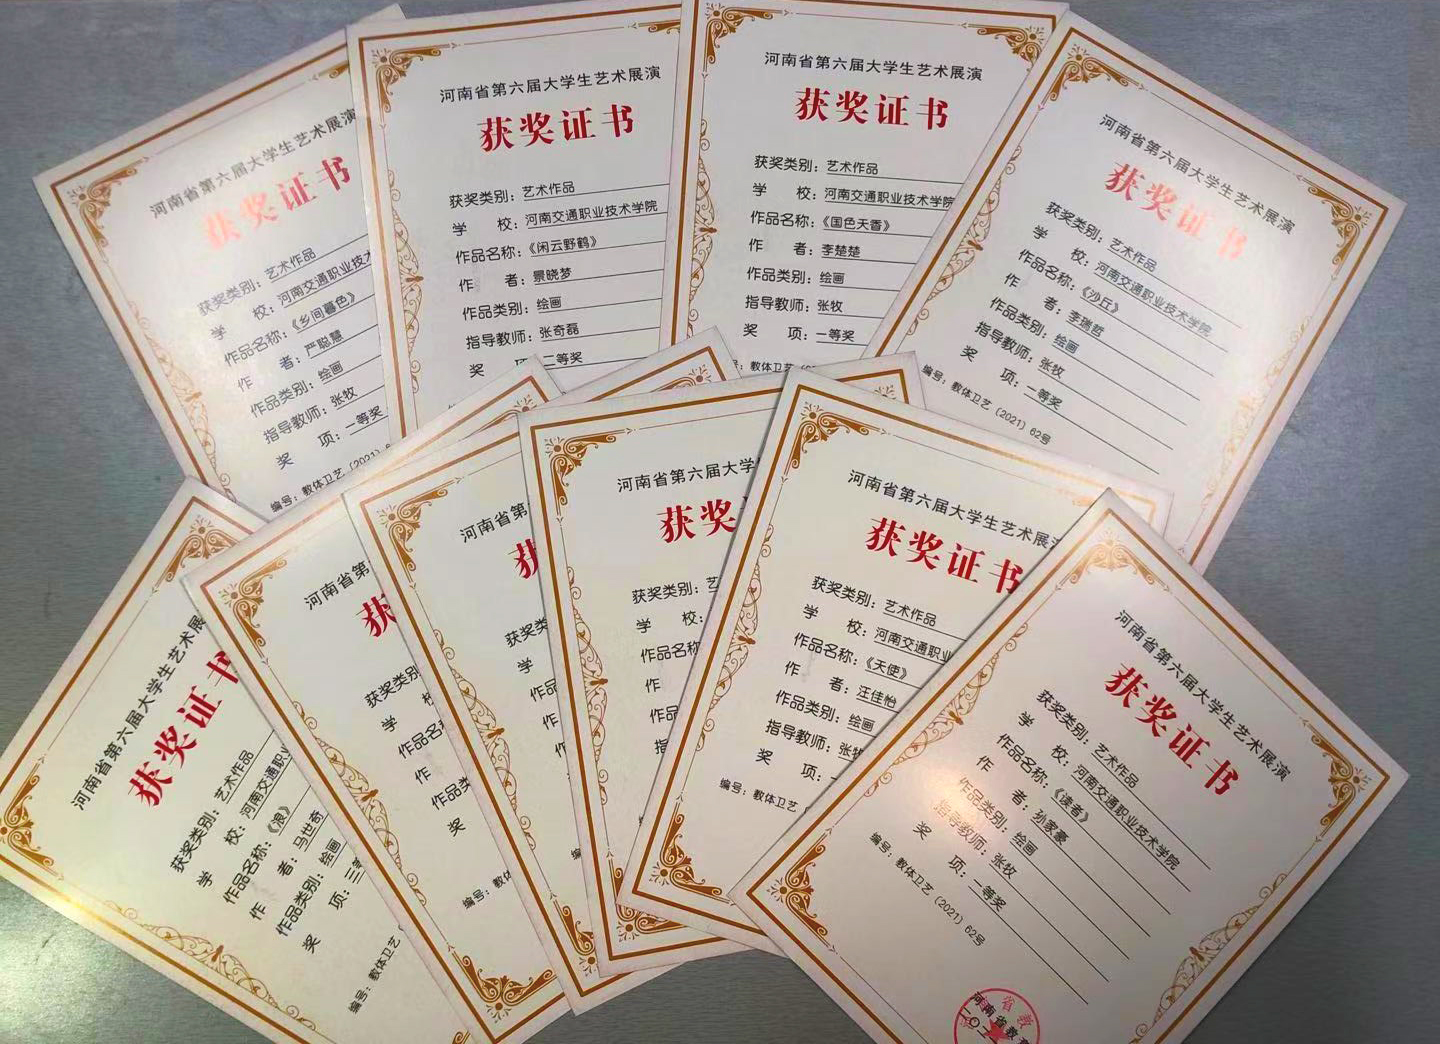 河南省第六届大学生艺术展演
获奖证书
获奖类别：艺术作品
学 校：河南交通职业技术
作品名称：《乡间暮色》
作 者：严聪慧
作品类别：绘画
指导教师：张牧
奖 项：一等奖
编号：教体卫艺〔2021〕6
河南省第六届大学生艺术展演
获奖证书
获奖类别：艺术作品
学 校：河南交通职业技术学院
作品名称：《闲云野鹤》
作 者：景晓梦
作品类别：绘画
指导教师：张奇磊
奖 项：二等奖
河南省第六届大学生艺术展演
获奖证书
获奖类别：艺术作品
学 校：河南交通职业技术学院
作品名称：《国色天香》
作 者：李楚楚
作品类别：绘画
指导教师：张牧
奖 项：一等奖
编号：教体卫艺
河南省第六届大学生艺术展演
获奖证书
获奖类别：艺术作品
学 校：河南交通职业技术学院
作品名称：《沙丘》
作 者：李瑞哲
作品类别：绘画
指导教师：张牧
奖 项：一等奖
编号：教体卫艺〔2021〕62号
河南省第六届大学生艺术展
获奖证书
获奖类别：艺术作品
学 校：河南交通职业
作品名称：《浪》
作 者：马世奇
作品类别：绘画
奖 项：三等
编号：教体卫艺
河南省第
获
获奖类别
学 校
作品名称
作
作品类
奖
编号：教体
河南省第六
获
获奖类别：艺
学
作品
作
河南省第六届大学
获奖
获奖类别：艺
学 校：
作品名称
作
作品
指
河南省第六届大学生艺术展演
获奖证书
获奖类别：艺术作品
学 校：河南交通职业
作品名称：《天使》
作 者：汪佳怡
作品类别：绘画
指导教师：张牧
奖 项：
编号：教体卫艺
河南省第六届大学生艺术展演
获奖证书
获奖类别：艺术作品
学 校：河南交通职业技术学院
作品名称：《读者》
作 者：孙家豪
作品类别：绘画
指导教师：张牧
奖 项：二等奖
编号：教体卫艺〔2021〕62号
河南省教